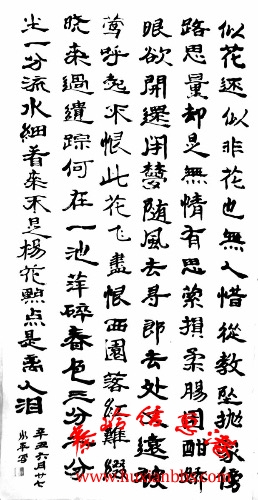 似花还似非花也無人惜從教墜抛家傍
路思量却是無情有思縈損柔腸困酣嬌
眼欲開還閉夢随風去寻郎去处還被
莺呼起不恨此花飞盡恨西園落红難綴
晓来過遺踪何在一池萍碎春色三分分
尘一分流水細看来不是楊花點点是离人泪
辛丑六月廿七